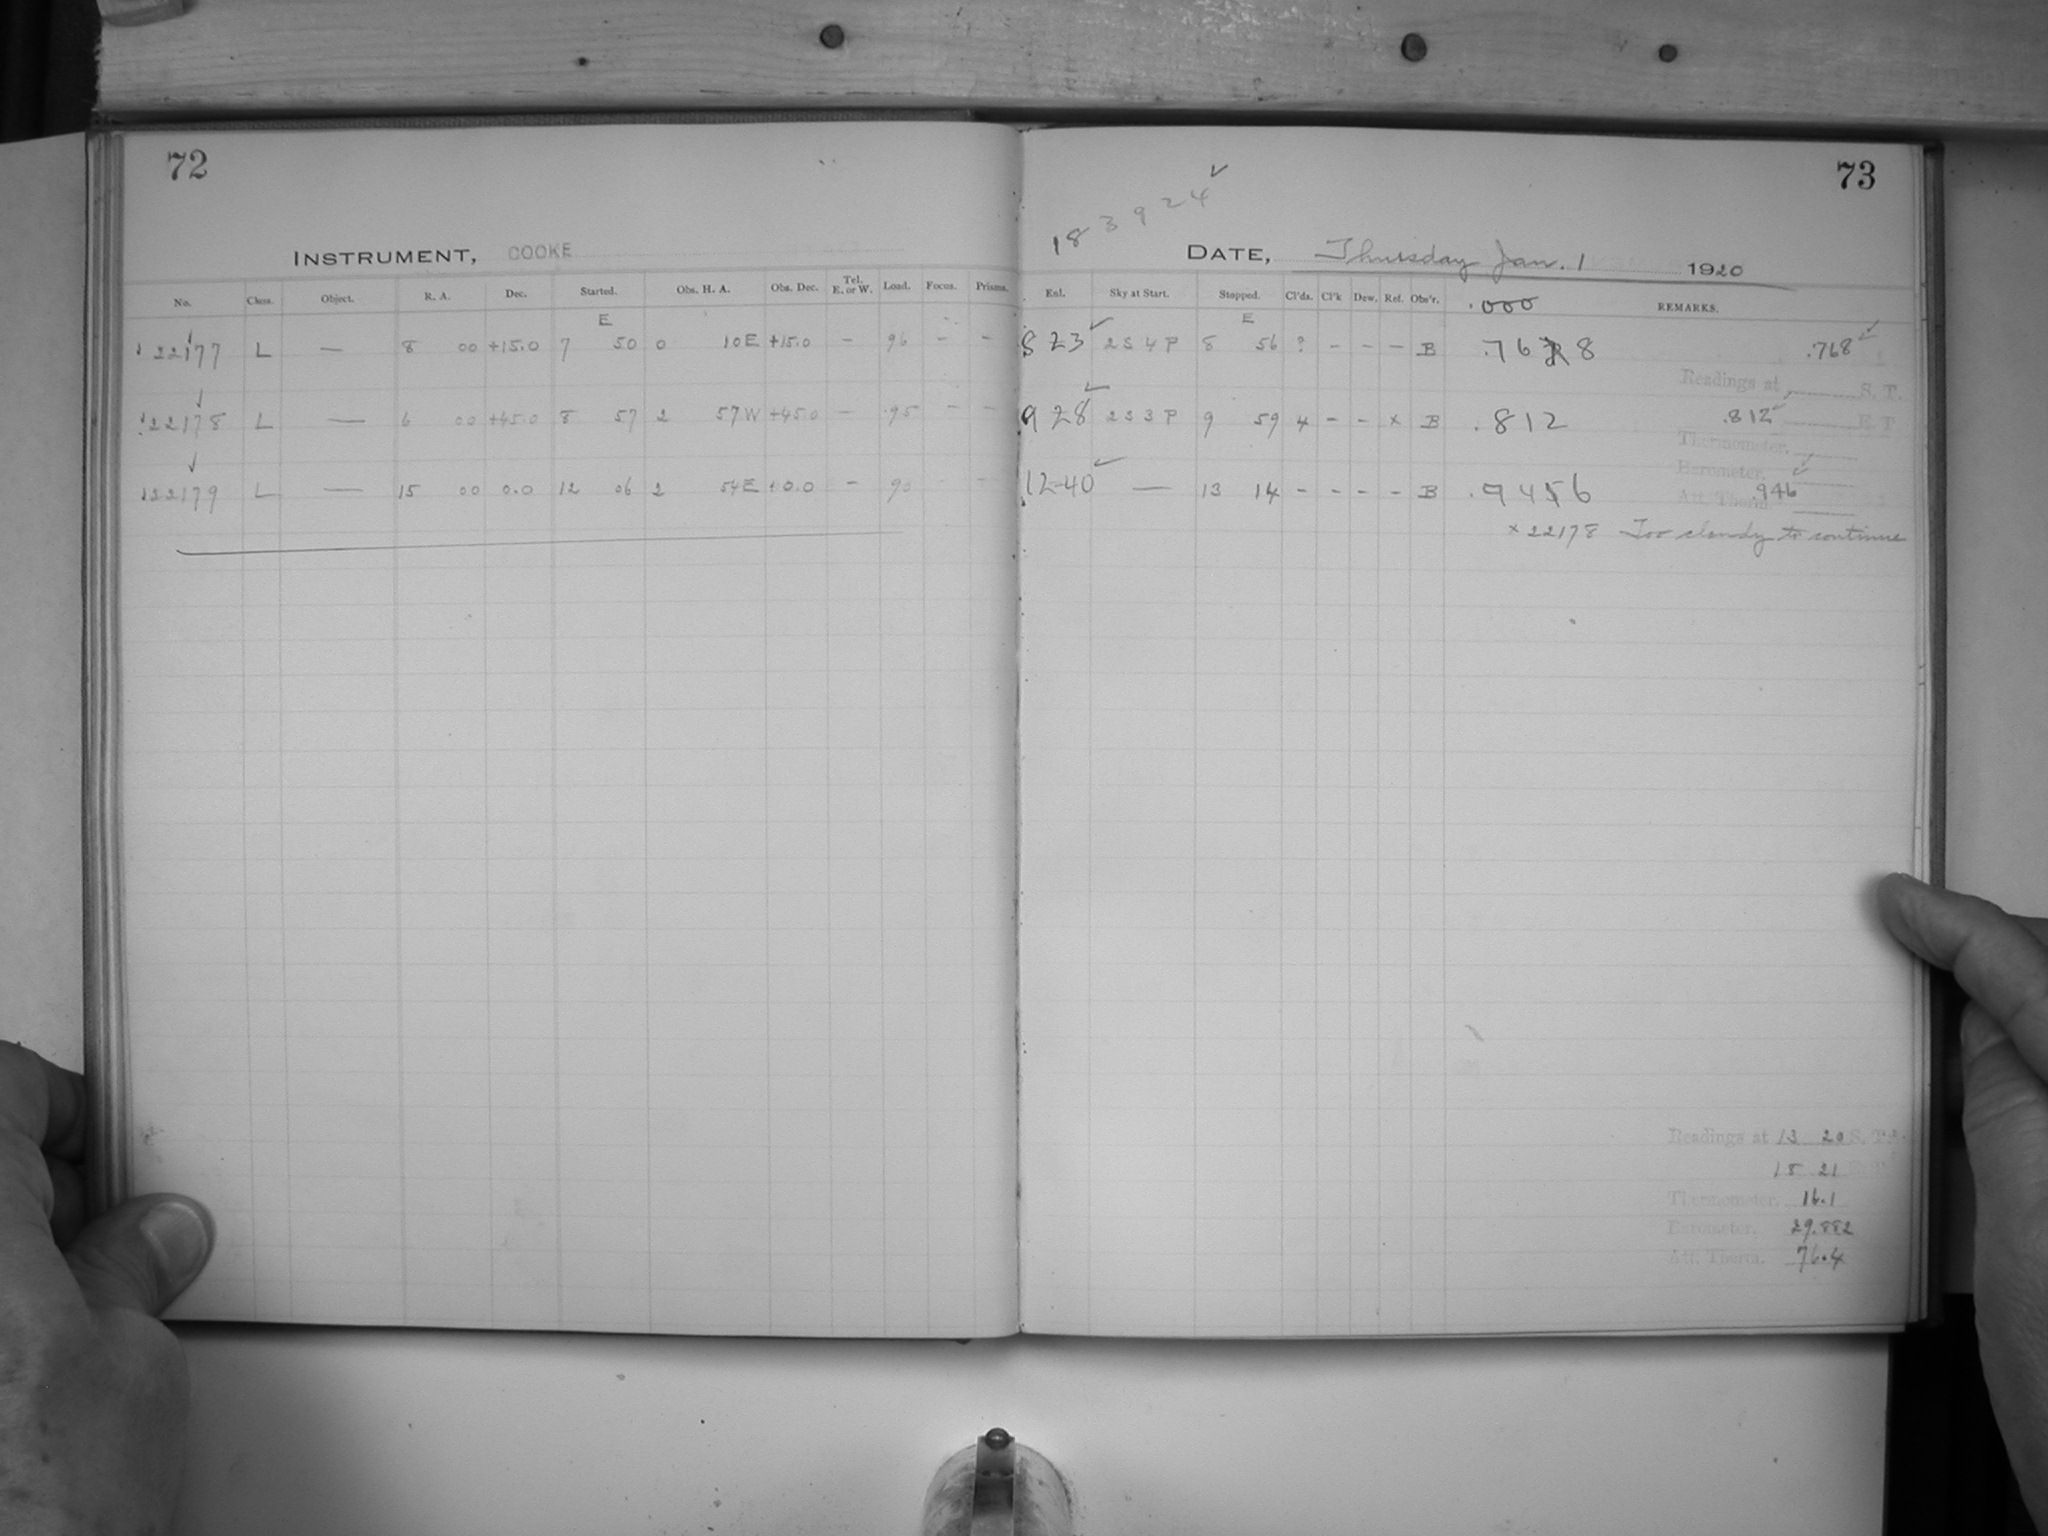 72
INSTRUMENT, COOKE
No. Class. Object. R. A. Dec. Started. Obs. H. A. Obs. Dec. Tel. E. or W. Load. Focus. Prisms.
E
122177 L — 8 00 +15.0 7 50 0 10E +15.0 - 96 - -
122178 L — 6 00 +45.0 8 57 2 57W +45.0 - 95 - -
122179 L — 15 00 0.0 12 06 2 54E +0.0 - 90 - -
73
183924 ✓
DATE, Thursday Jan. 1 1920
Enl. Sky at Start. Stopped. Cl'ds. Cl'k Dew. Ref. Obs'r. .000 REMARKS.
E
8 23 ✓ 2 S 4 P 8 56 ? - - - B 8 .768 ✓
Readings at S. T.
9 28 ✓ 2 S 3 P 9 59 4 - - x B .812 .812 ✓ E. T.
Thermometer.
Barometer.
12-40 ✓ — 13 14 - - - - B .946 ✓
Att. Therm
x 22178 Too cloudy to continue
Readings at 13 20 S. T.
18 21
Thermometer. 16.1
Barometer. 29.882
Att. Therm. 76.4